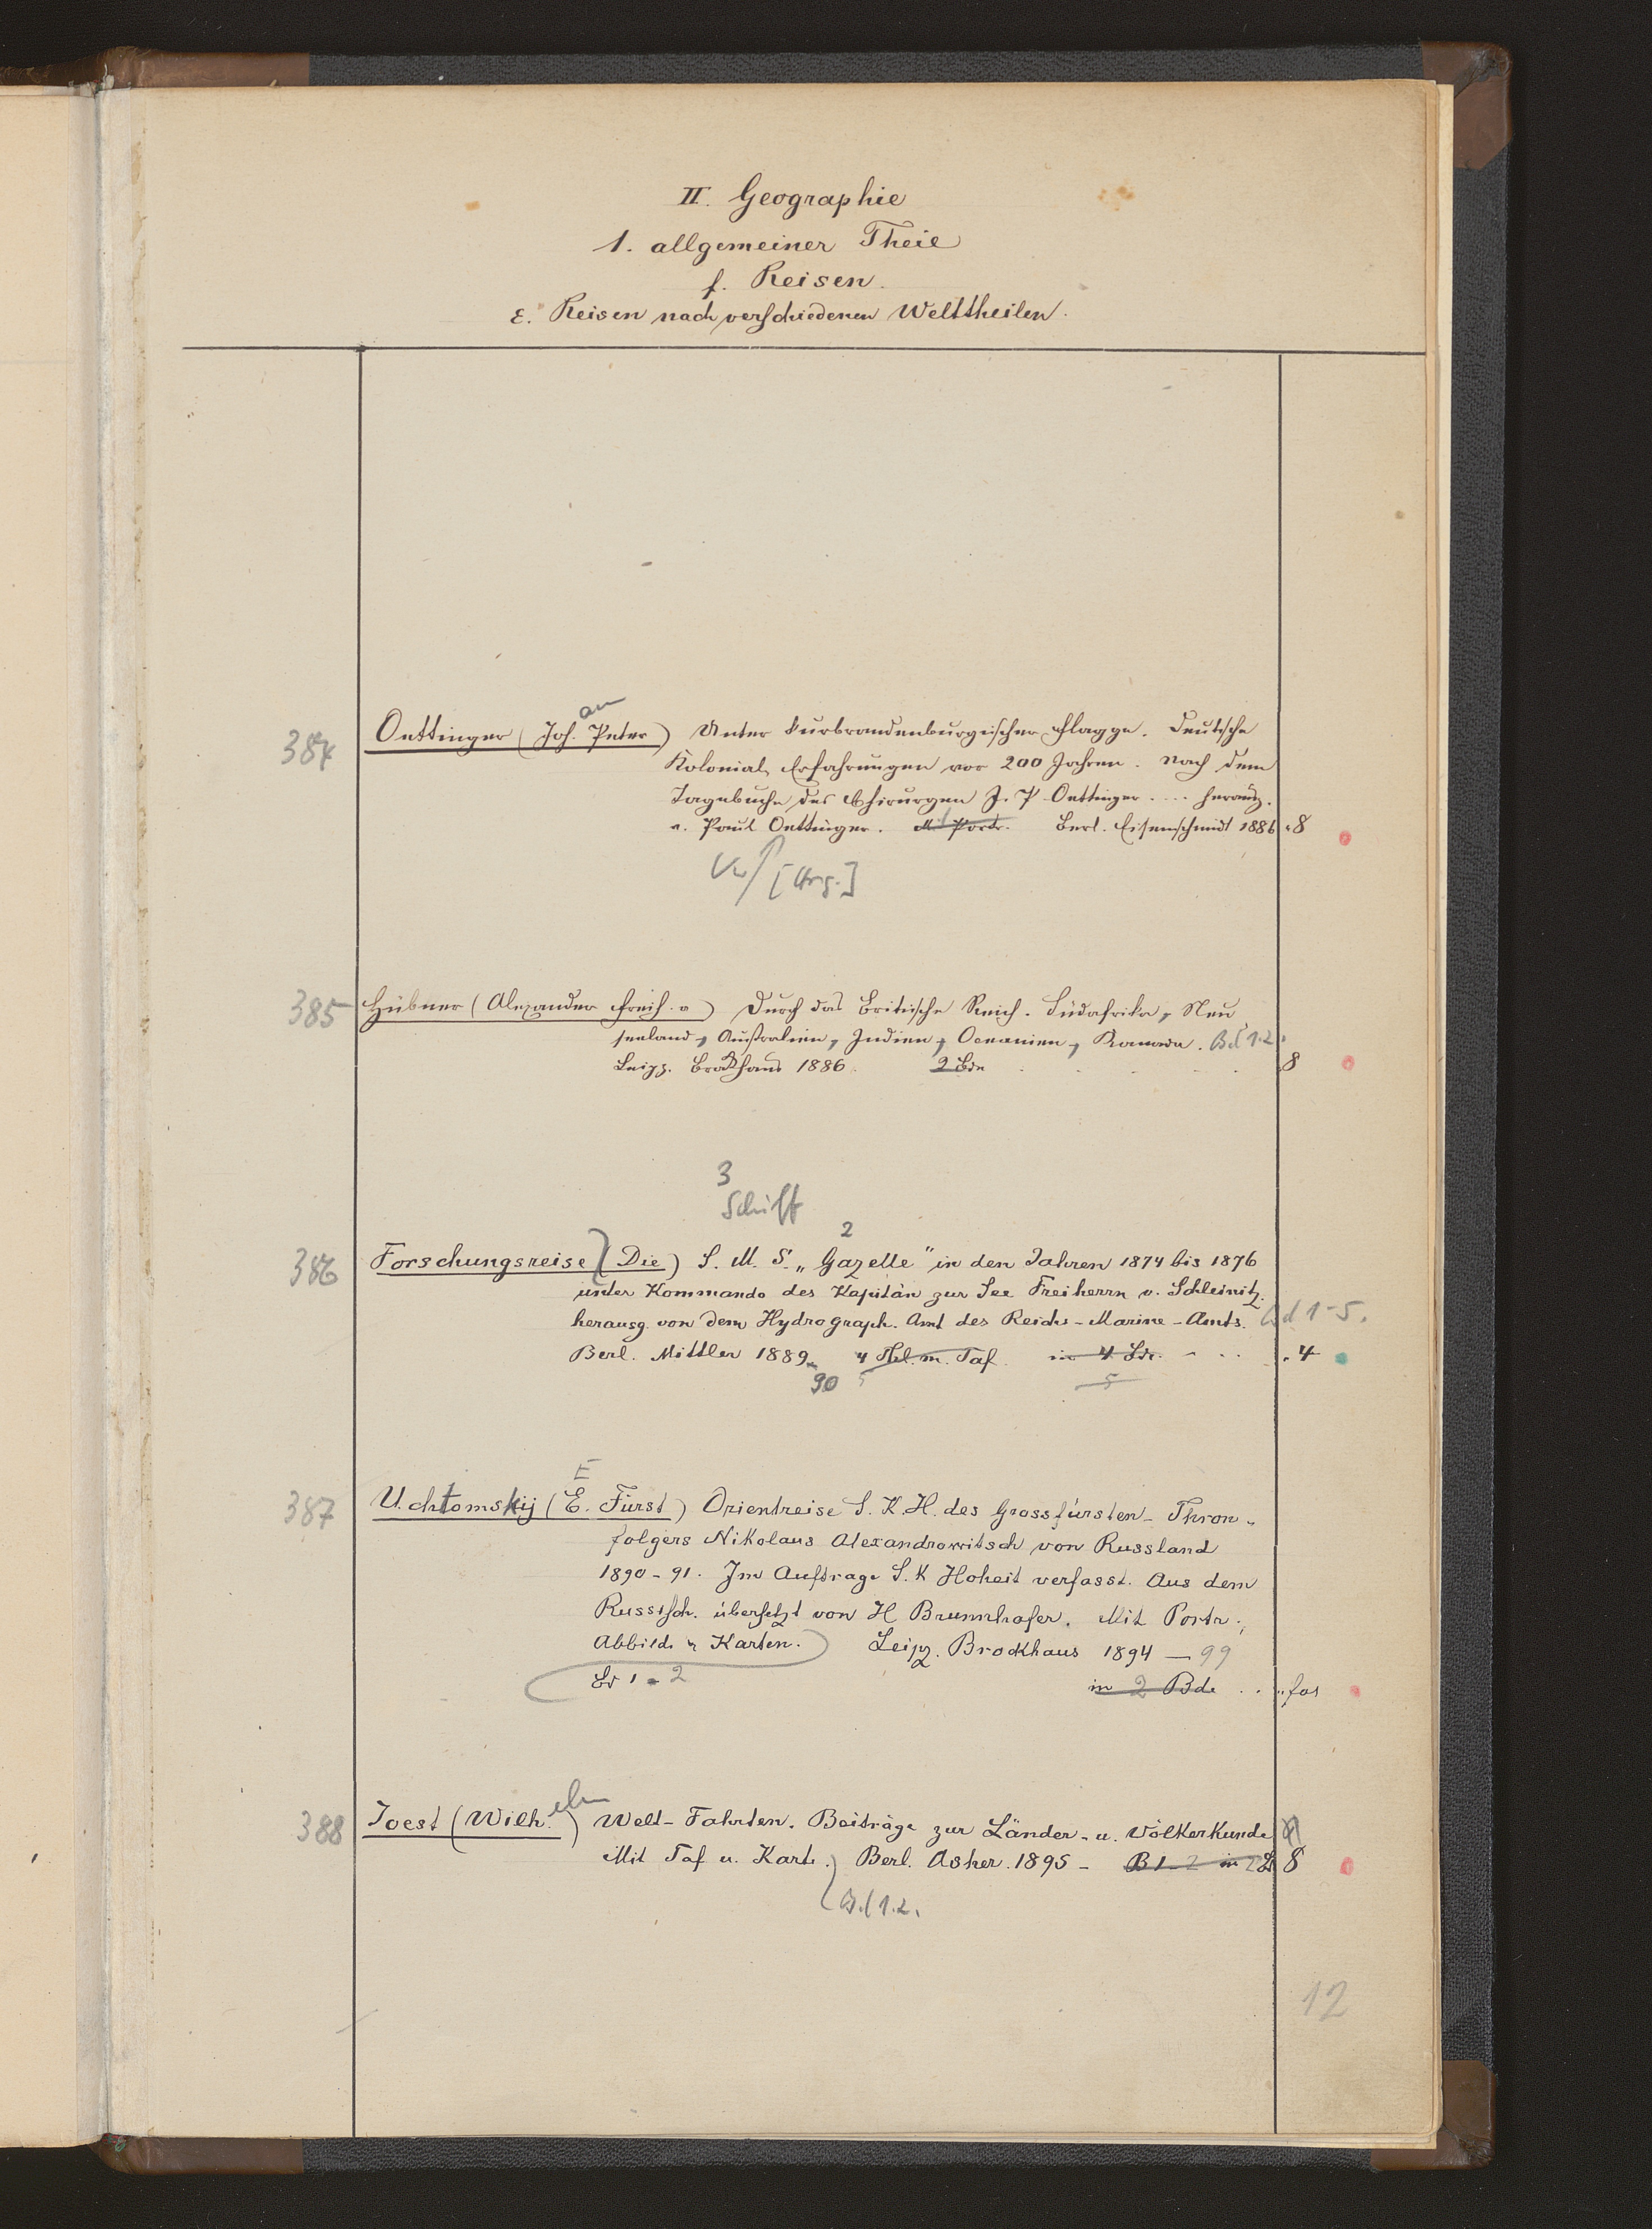 II. Geographie
1. allgemeiner Theil
f. Reisen.
ε. Reisen nach verschiedenen Welttheilen.
an
384 Oettinger (Joh. Peter) Unter kurbrandenburgischer Flagge. Deutsche
Kolonial-Erfahrungen vor 200 Jahren. Nach dem
Tagebuche des Chirurgen J. P. Oettinger .... herausg.
v. Paul Oettinger. M. Portr. Berl. Eisenschmidt 1886 . 8
[Hrg.]
385 Hübner (Alexander Freih. v.) Durch das Britische Reich. Südafrika, Neu
seeland, Australien, Indien, Oceanien, Kanada. Bd 1.2.
Leipz. Brockhaus 1886. 2 Bde . . . . 8
3
Schiff
2
386 Forschungsreise (Die) S. M. S. „Gazelle" in den Jahren 1874 bis 1876
unter Kommando des Kapitän zur See Freiherrn v. Schleinitz.
herausg. von dem Hydrograph. Amt des Reichs-Marine-Amts. Bd 1-5.
Berl. Mittler 1889 4 Thl. m. Taf. in 4 Bde. . . . . 4
90 5 5
E
387 Uchtomskij (E. Fürst) Orientreise S. K. H. des Grossfürsten-Thron-
folgers Nikolaus Alexandrowitsch von Russland
1890-91. Im Auftrage S. K. Hoheit verfasst. Aus dem
Russisch. übersetzt von H Brunnhofer. Mit Portr.,
Abbild. u Karten. Leipz. Brockhaus 1894 — 99
Bd 1-2 in 2 Bde . . . fol
elm
388 Joest (Wilh.) Welt-Fahrten. Beiträge zur Länder- u. Völkerkunde
Mit Taf u. Kart. Berl. Asher. 1895 - B 1-2 in 2 B 8
Bd 1.2.
12